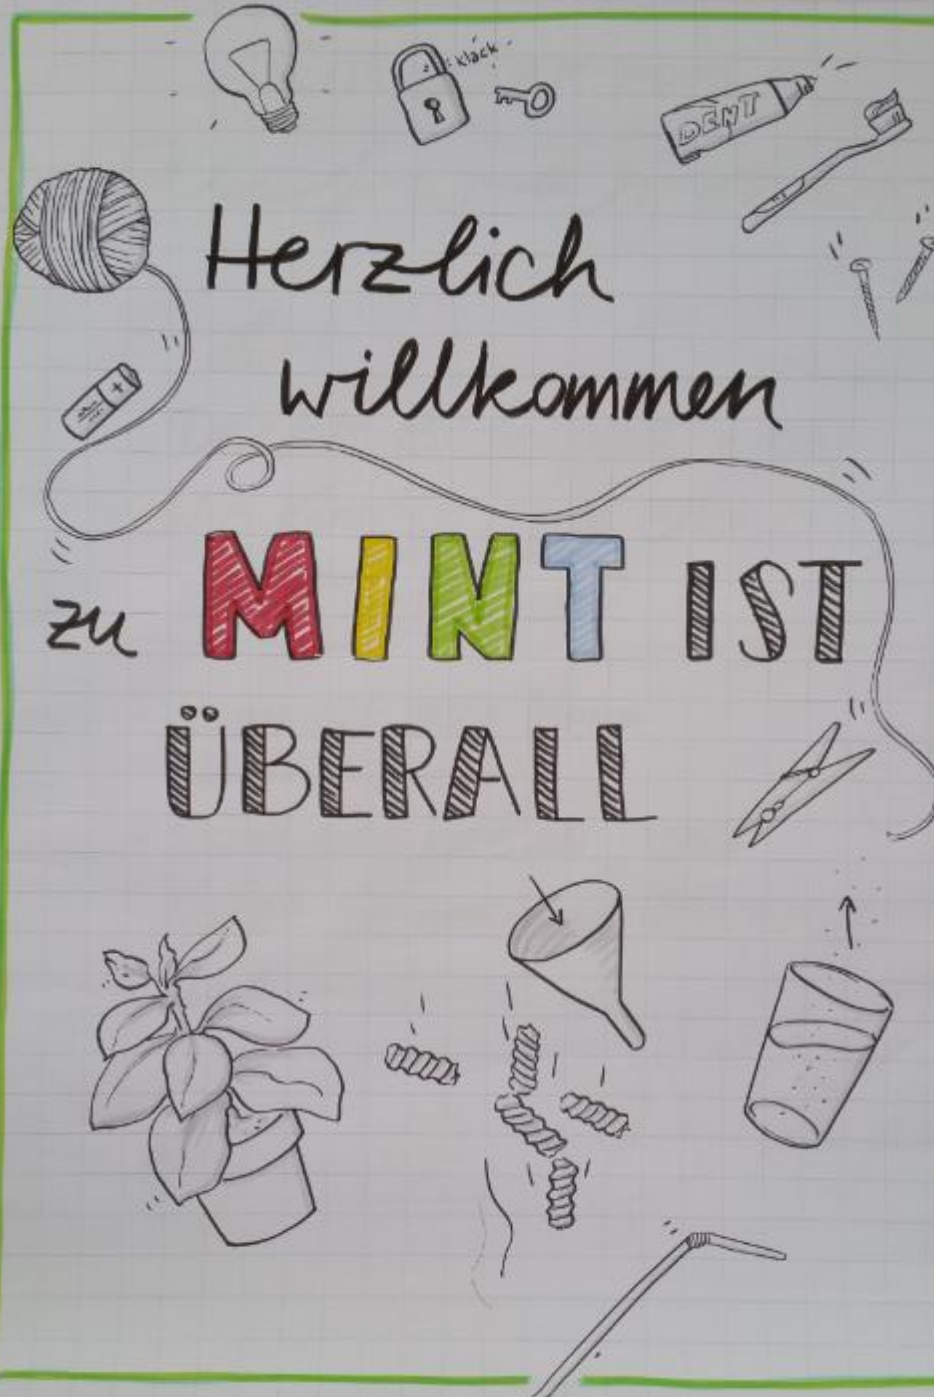 klack
DENT
Herzlich
willkommen
zu MINT IST
ÜBERALL